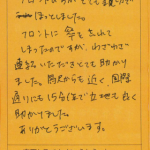 ほっとしました。
フロントに傘を忘れて
しまったのですが、わざわざ
連絡いただきとても助かり
ました。駅からも近く、国際
通りにも15分位で立地も良く
助かりました。
ありがとうございます。